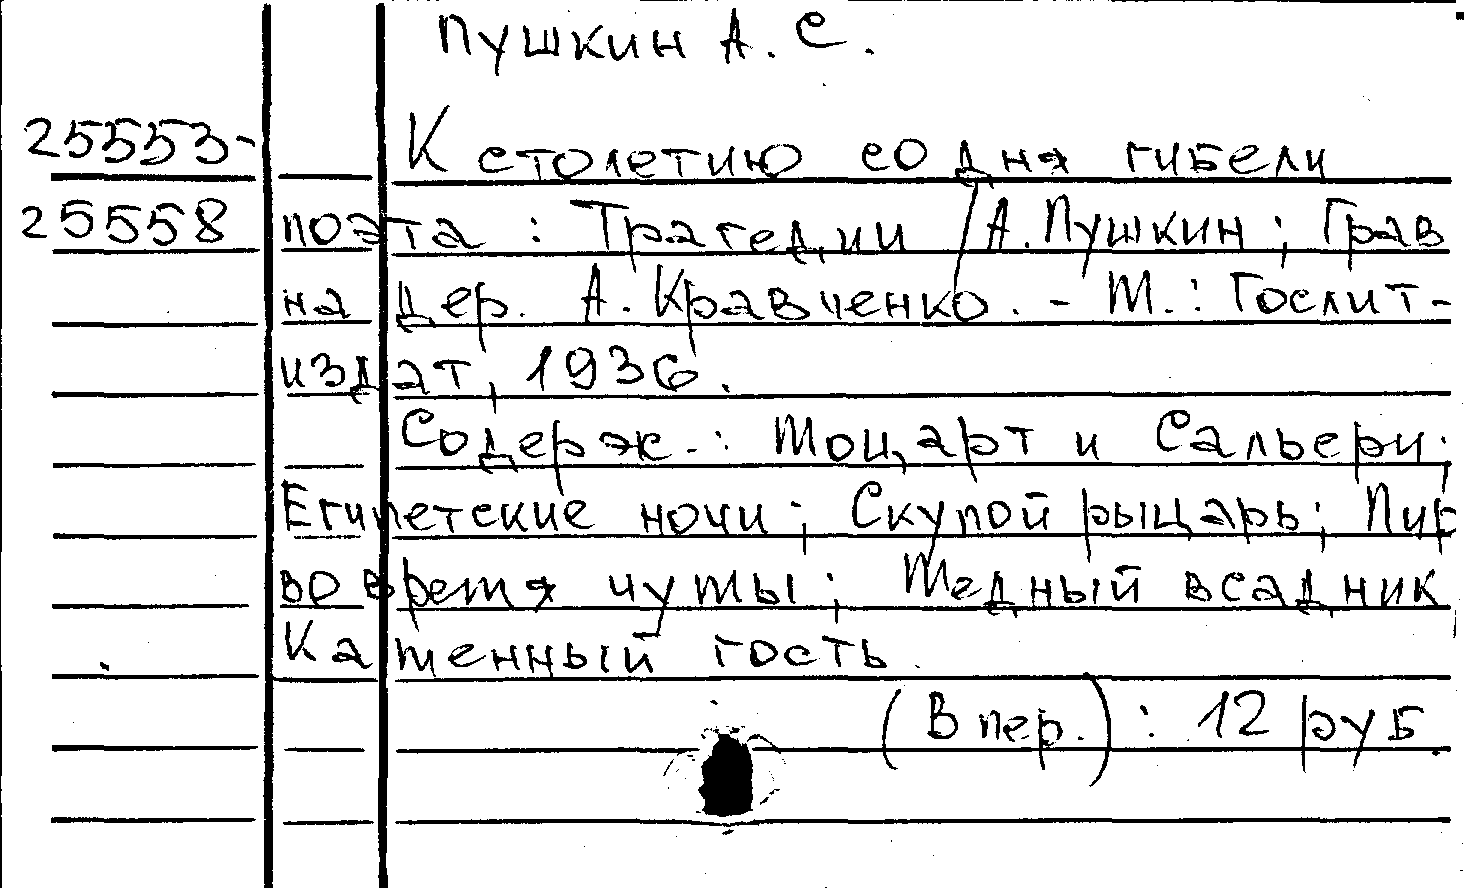 Пушкин А. С.
25553- К столетию со дня гибели
25558 поэта : Трагедии / А. Пушкин ; Грав
на дер. А. Кравченко. - М. : Гослит-
издат, 1936.
Содерж. : Моцарт и Сальери ;
Египетские ночи ; Скупой рыцарь ; Пир
во время чумы ; Медный всадник
Каменный гость.
(В пер.) : 12 руб.